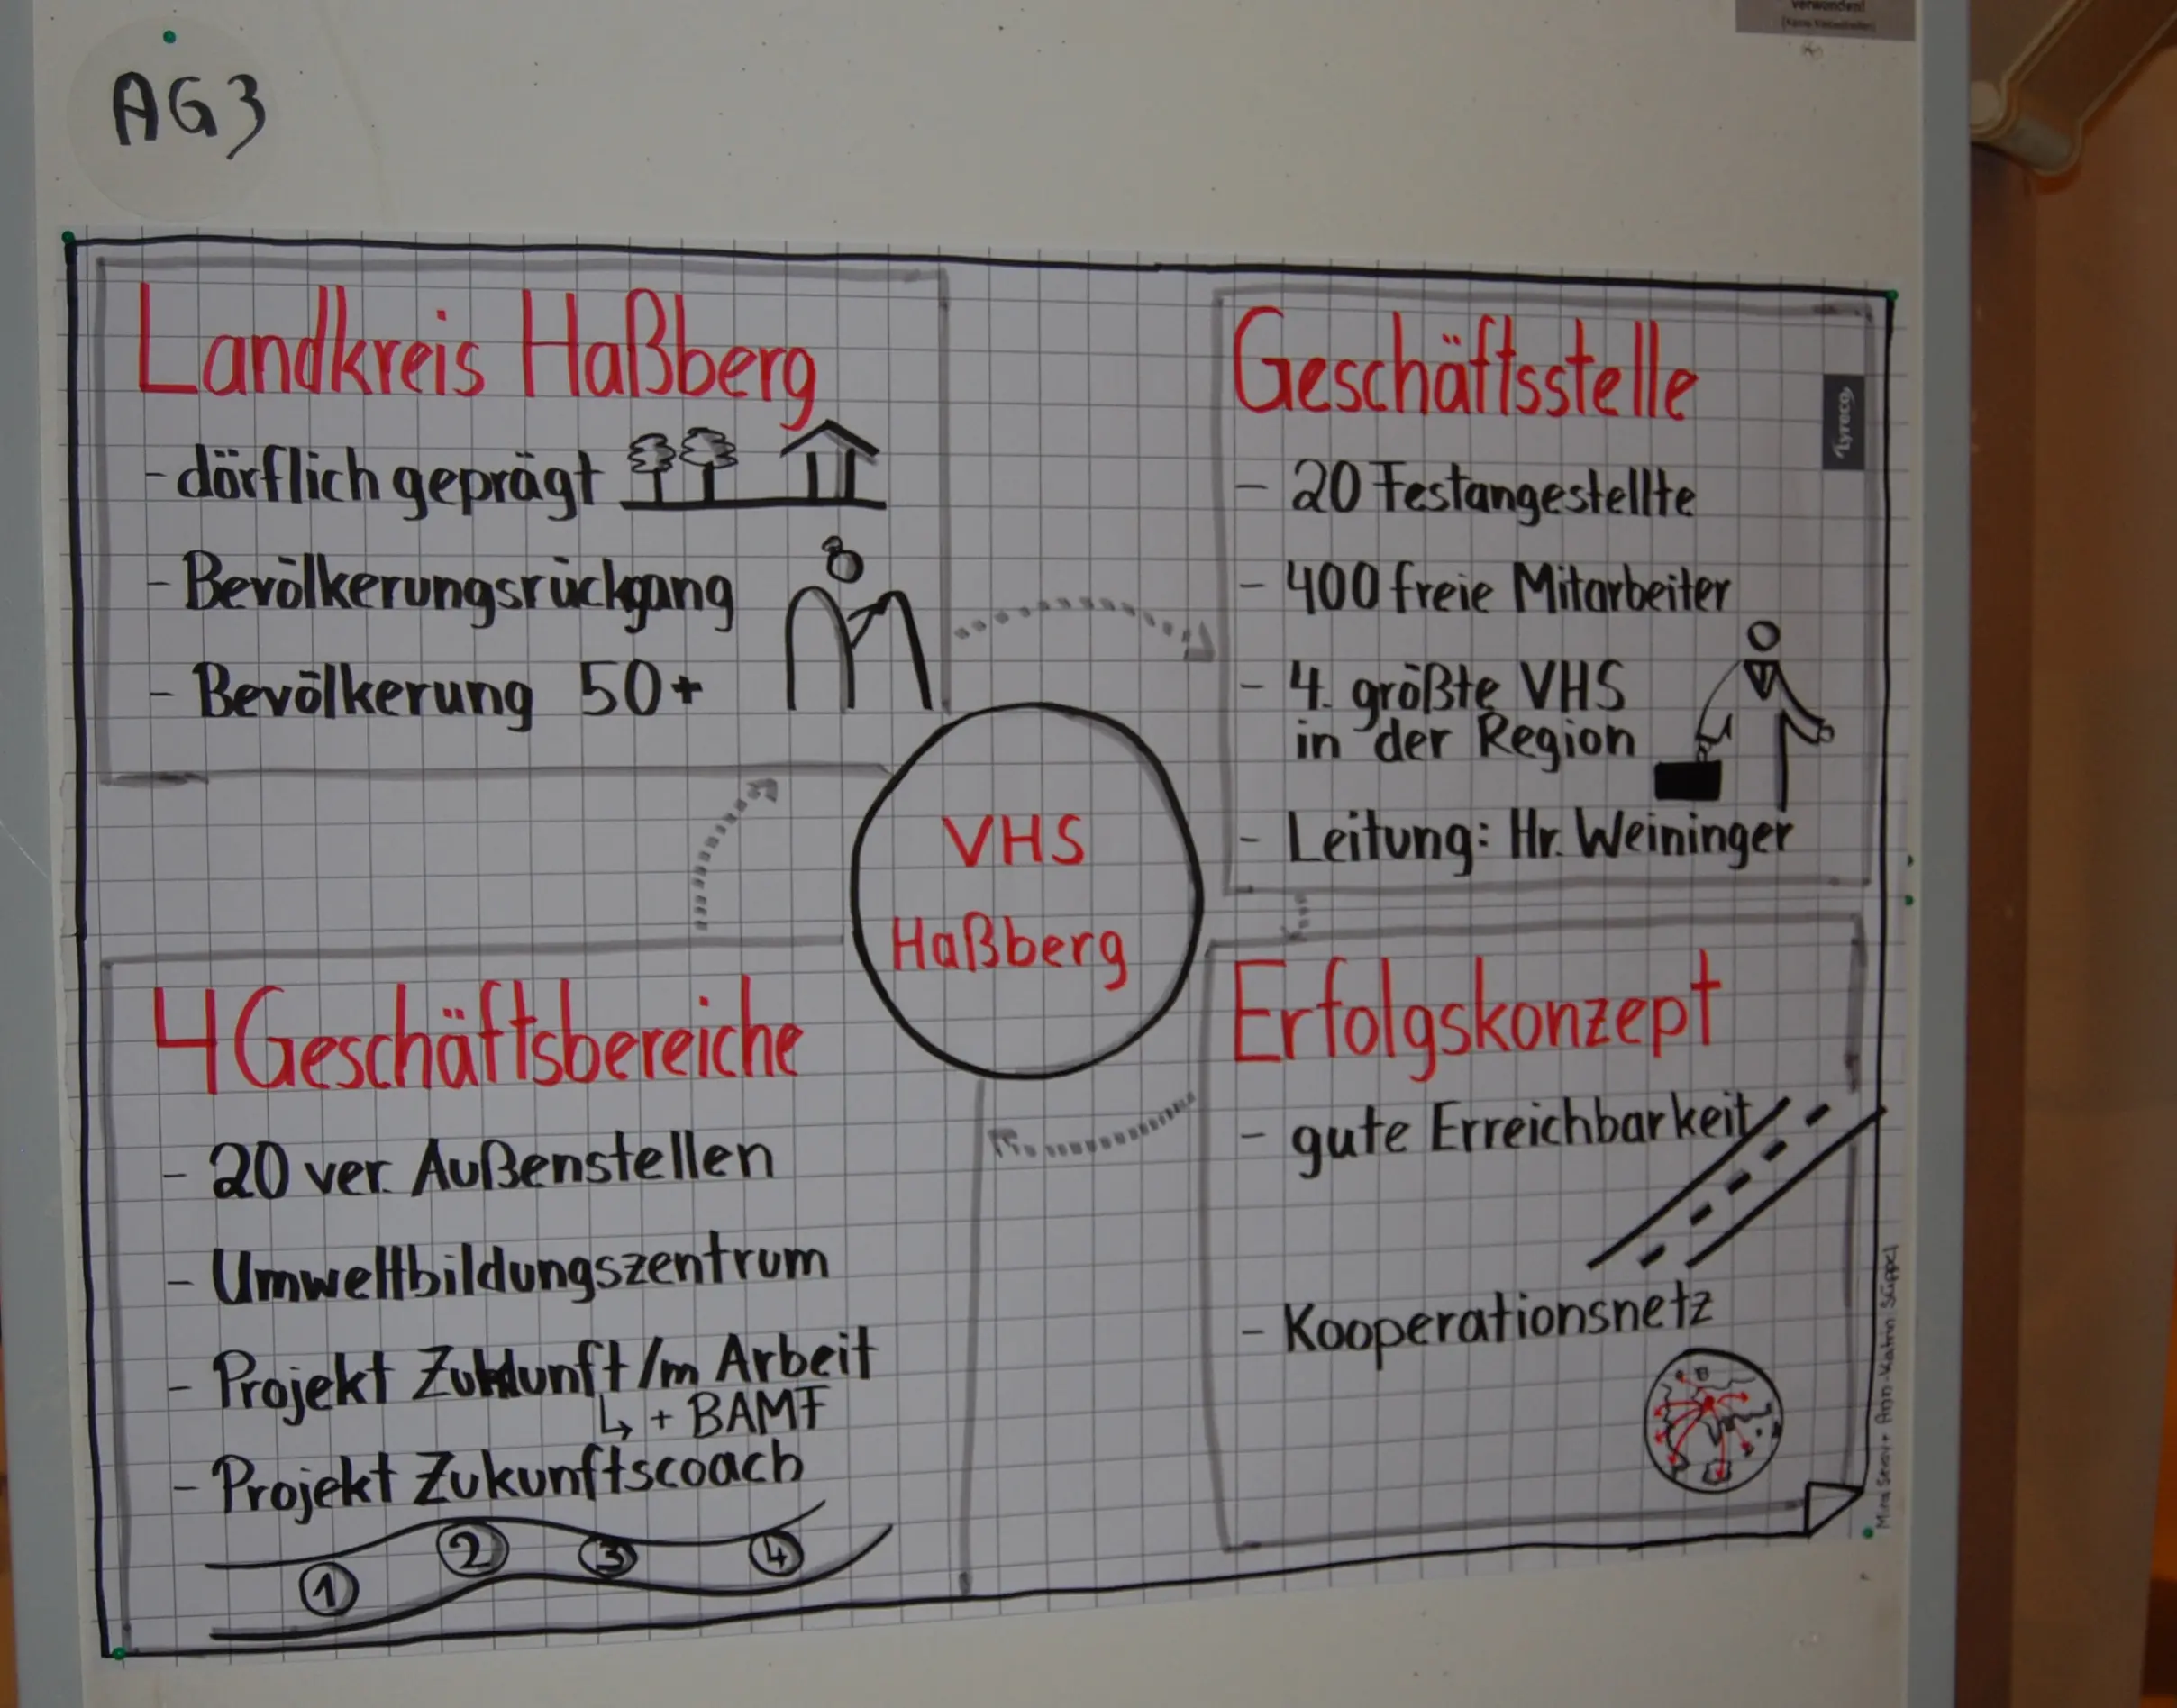 verwenden!
AG3
Landkreis Haßberg
- dörflich geprägt
- Bevölkerungsrückgang
- Bevölkerung 50+
Geschäftsstelle
- 20 Festangestellte
- 400 freie Mitarbeiter
- 4. größte VHS
in der Region
- Leitung: Hr. Weininger
Lyreco
VHS
Haßberg
4 Geschäftsbereiche
- 20 ver. Außenstellen
- Umweltbildungszentrum
- Projekt Zukunft /m Arbeit
↳ + BAMF
- Projekt Zukunftscoach
1 2 3 4
Erfolgskonzept
- gute Erreichbarkeit
- Kooperationsnetz
Ann-Katrin Süppel